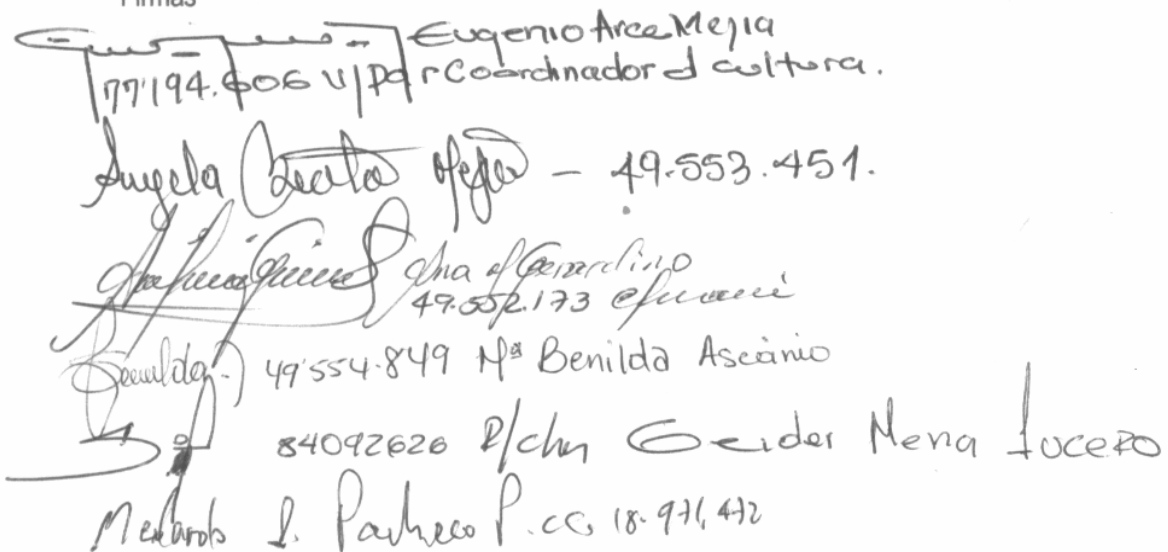 Firmas
Eugenio Arce Mejia
77'194.606 V/Par Coordinador d cultura.
Angela Mejia - 49.553.451.
Ana Gerardino
49.552.173
Benilda 49'554.849 Mª Benilda Ascanio
84092626 Geider Mena Lucero
I. Pacheco P. cc. 18.971,472